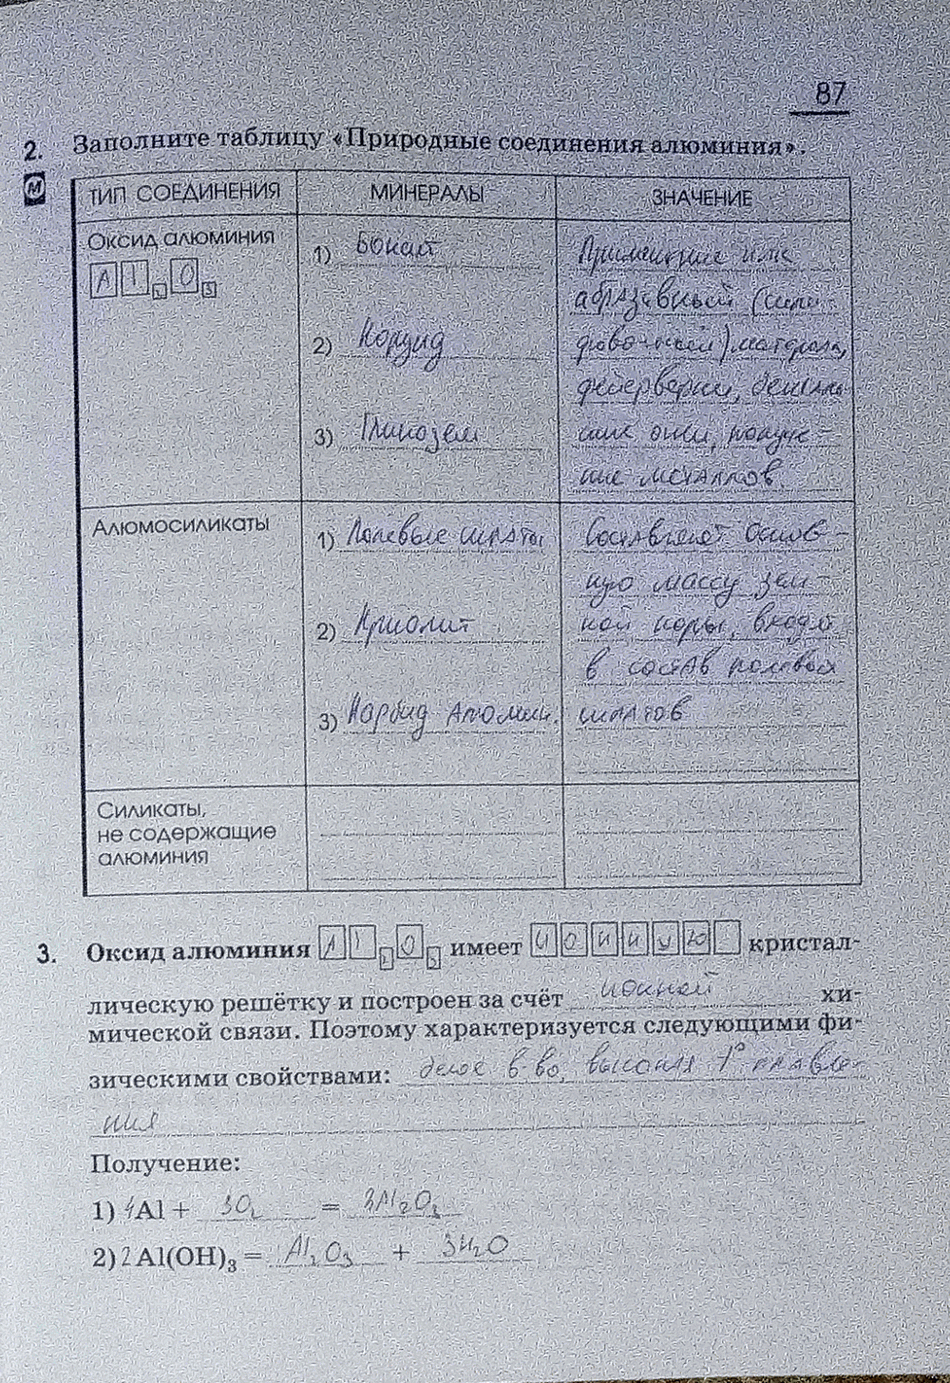 87
2. Заполните таблицу «Природные соединения алюминия».
М
ТИП СОЕДИНЕНИЯ МИНЕРАЛЫ ЗНАЧЕНИЕ
Оксид алюминия
Al₂O₃
1) Бокит
2) Корунд
3) Глинозем
Применение как
абразивный (шли-
фовочный) материал,
фейерверки, бенгаль-
ские огни, получе-
ние металлов.
Алюмосиликаты
1) Полевые шпаты
2) Криолит
3) Карбид алюмин.
Составляет основ-
ную массу зем-
ной коры, входят
в состав полевых
шпатов
Силикаты,
не содержащие
алюминия
3. Оксид алюминия Al₂O₃ имеет ионную кристал-
лическую решётку и построен за счёт ионной хи-
мической связи. Поэтому характеризуется следующими фи-
зическими свойствами: белое в-во, высокая t° плавле-
ния
Получение:
1) 4Al + 3O₂ = 2Al₂O₃
2) 2Al(OH)₃ = Al₂O₃ + 3H₂O